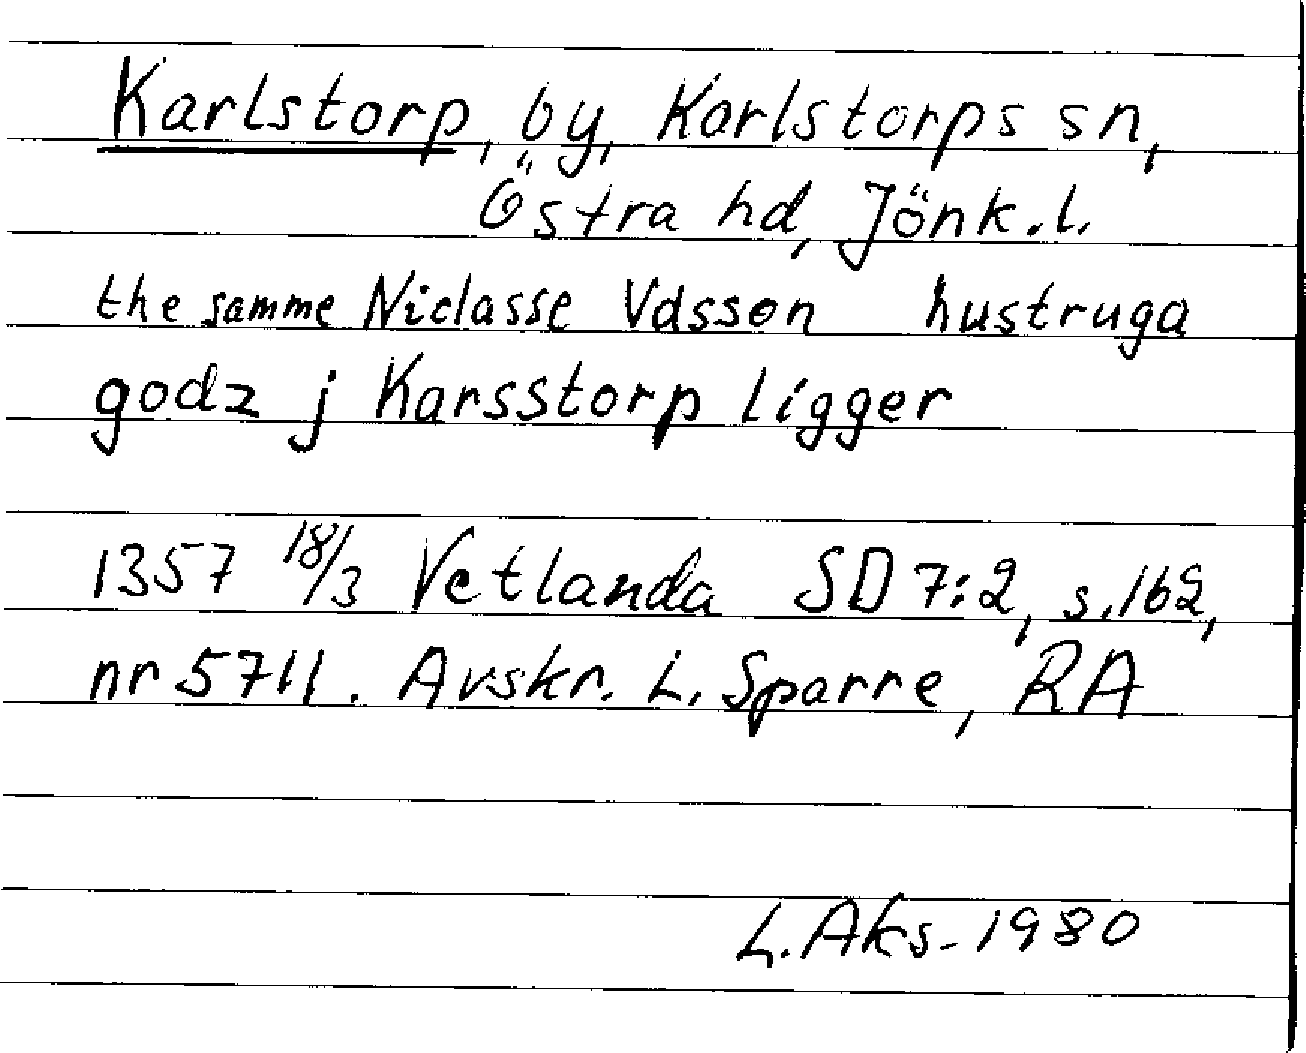 Karlstorp, by, Karlstorps sn,
Östra hd, Jönk.l.
the samme Niclasse Vdsson hustruga
godz j Karsstorp ligger
1357 18/3 Vetlanda SD 7:2, s.162,
nr 5711. Avskr. L. Sparre, RA
L. Aks- 1980